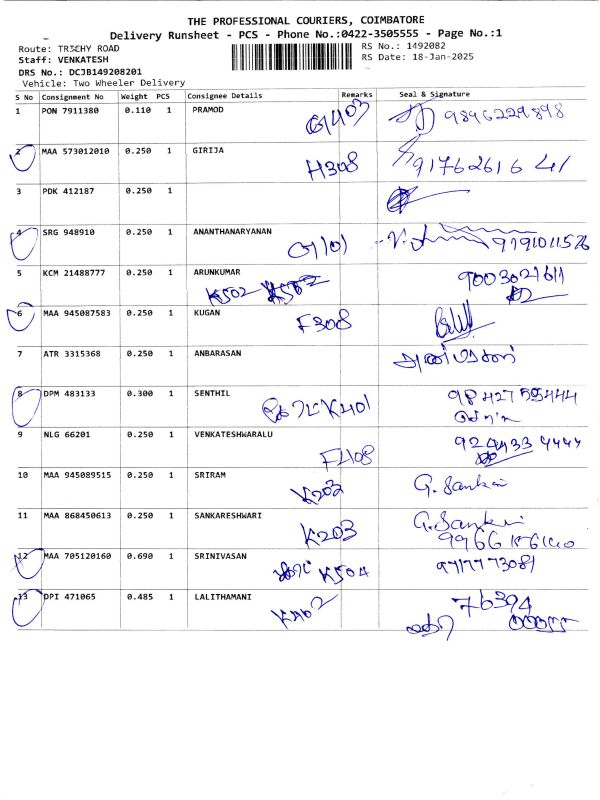 THE PROFESSIONAL COURIERS, COIMBATORE
Delivery Runsheet - PCS - Phone No.:0422-3505555 - Page No.:1
Route: TR3CHY ROAD RS No.: 1492082
Staff: VENKATESH RS Date: 18-Jan-2025
DRS No.: DCJB149208201
Vehicle: Two Wheeler Delivery
S No Consignment No Weight PCS Consignee Details Remarks Seal & Signature
1 PON 7911380 0.110 1 PRAMOD
G1403 9896229898
2 MAA 573012010 0.250 1 GIRIJA
H308 9176261641
3 PDK 412187 0.250 1
4 SRG 948910 0.250 1 ANANTHANARYANAN
G1101 9791011526
5 KCM 21488777 0.250 1 ARUNKUMAR
K502 K502 9003021611
6 MAA 945087583 0.250 1 KUGAN
F308
7 ATR 3315368 0.250 1 ANBARASAN
அன்பரசன்
8 DPM 483133 0.300 1 SENTHIL
K401 9842755444
9 NLG 66201 0.250 1 VENKATESHWARALU
F408
10 MAA 945089515 0.250 1 SRIRAM
K203 G. Sankari
11 MAA 868450613 0.250 1 SANKARESHWARI
K203 G. Sankari
12 MAA 705120160 0.690 1 SRINIVASAN
K504 9717773081
13 DPI 471065 0.485 1 LALITHAMANI
76394